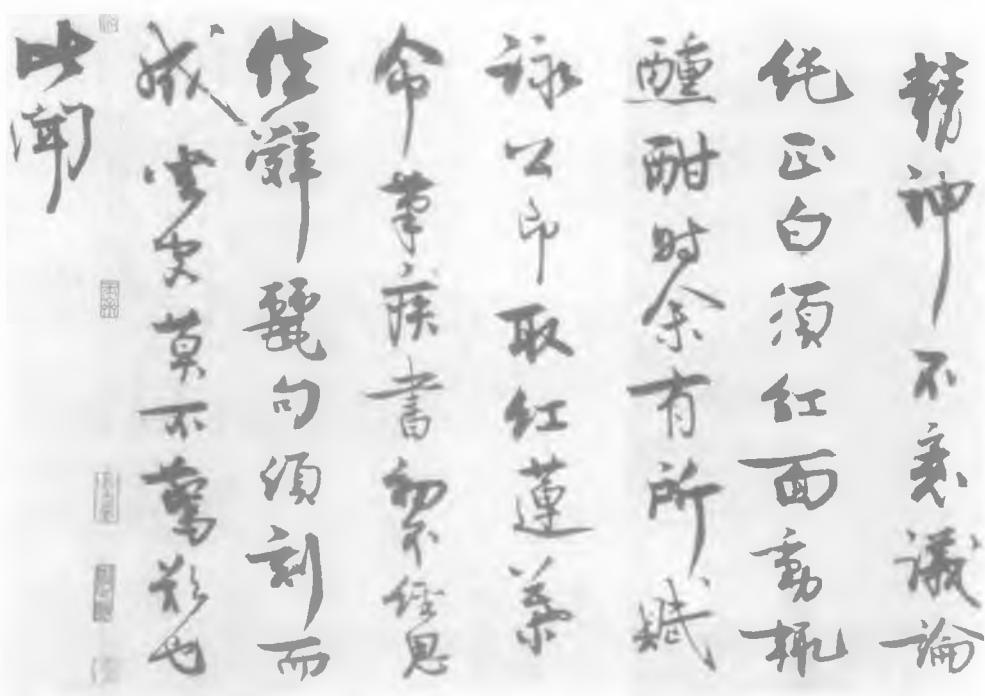 精神不衰議論
純正白須紅面動輒
醺酣時余有所賦
詠公即取紅蓮葉
命筆疾書初不經思
佳辭麗句頃刻而
成坐客莫不驚歎也
此聞